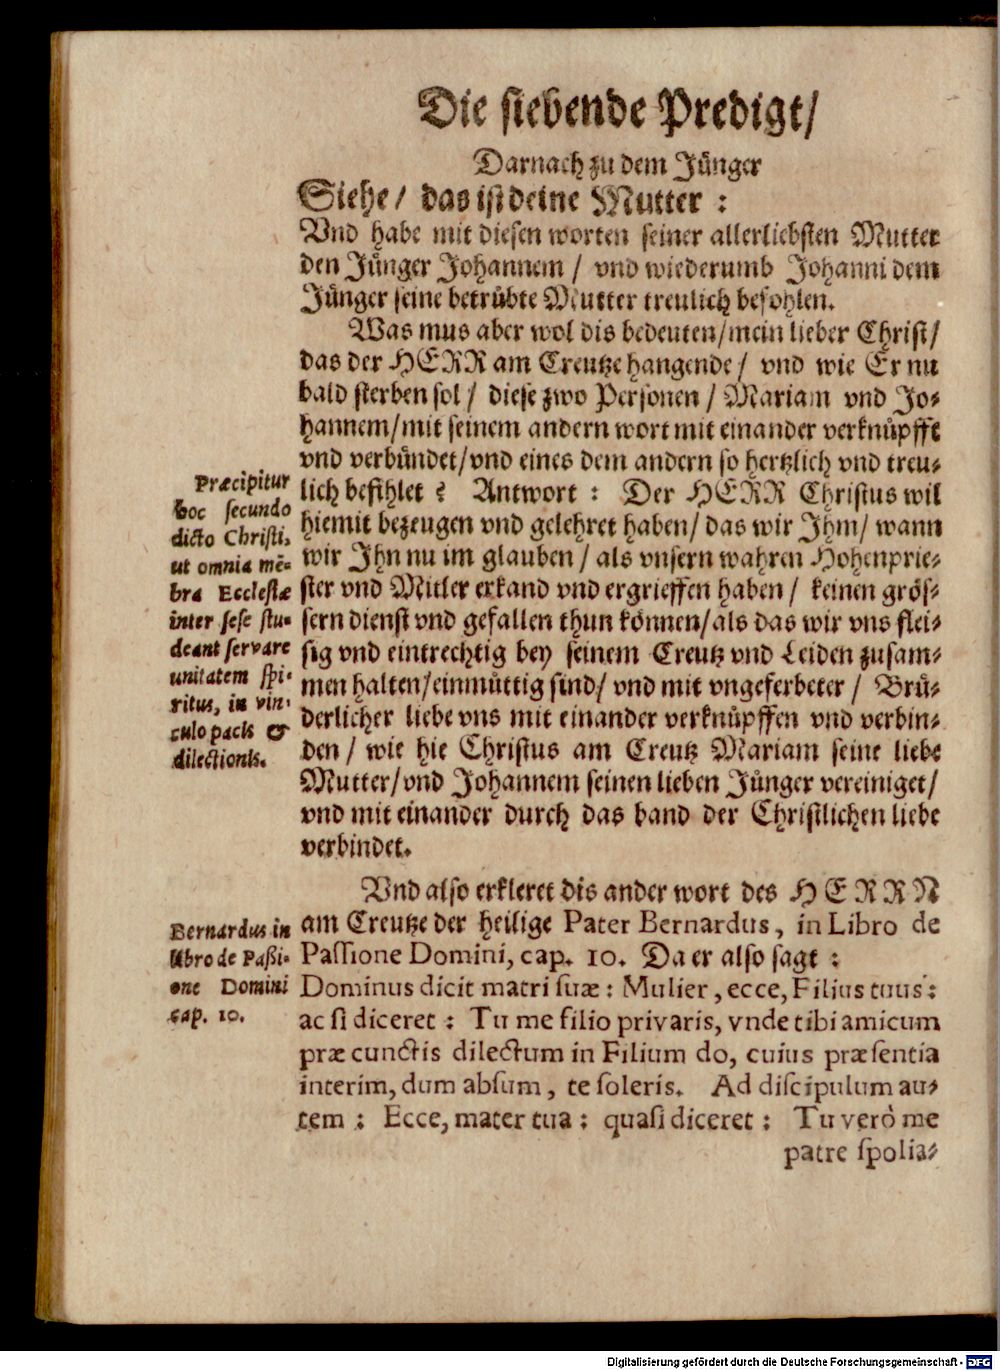 Die siebende Predigt/
Darnach zu dem Jünger
Siehe/ das ist deine Mutter:
Vnd habe mit diesen worten seiner allerliebsten Mutter
den Jünger Johannem/ vnd wiederumb Johanni dem
Jünger seine betrübte Mutter treulich befohlen.
Was mus aber wol dis bedeuten/mein lieber Christ/
das der HERR am Creutze hangende/ vnd wie Er nu
bald sterben sol/ diese zwo Personen/ Mariam vnd Jo-
hannem/mit seinem andern wort mit einander verknüpfft
vnd verbündet/vnd eines dem andern so hertzlich vnd treu-
lich befihlet? Antwort: Der HERR Christus wil
hiemit bezeugen vnd gelehret haben/ das wir Ihm/ wann
wir Ihn nu im glauben/ als vnsern wahren Hohenprie-
ster vnd Mitler erkand vnd ergrieffen haben/ keinen grös-
sern dienst vnd gefallen thun können/als das wir vns flei-
sig vnd eintrechtig bey seinem Creutz vnd Leiden zusam-
men halten/einmüttig sind/ vnd mit vngeferbeter/ Brü-
derlicher liebe vns mit einander verknüpffen vnd verbin-
den/ wie hie Christus am Creutz Mariam seine liebe
Mutter/vnd Johannem seinen lieben Jünger vereiniget/
vnd mit einander durch das band der Christlichen liebe
verbindet.
Præcipitur
hoc secundo
dicto Christi,
ut omnia mē-
bra Ecclesiæ
inter sese stu-
deant servare
unitatem spi-
ritus, in vin-
culo pacis &
dilectionis.
Vnd also erkleret dis ander wort des HERRN
am Creutze der heilige Pater Bernardus, in Libro de
Passione Domini, cap. 10. Da er also sagt:
Dominus dicit matri suæ: Mulier, ecce, Filius tuus:
ac si diceret: Tu me filio privaris, vnde tibi amicum
præ cunctis dilectum in Filium do, cuius præsentia
interim, dum absum, te soleris. Ad discipulum au-
tem: Ecce, mater tua: quasi diceret: Tu verò me
patre spolia-
Bernardus in
libro de Paßi-
one Domini
cap. 10.
Digitalisierung gefördert durch die Deutsche Forschungsgemeinschaft - DFG